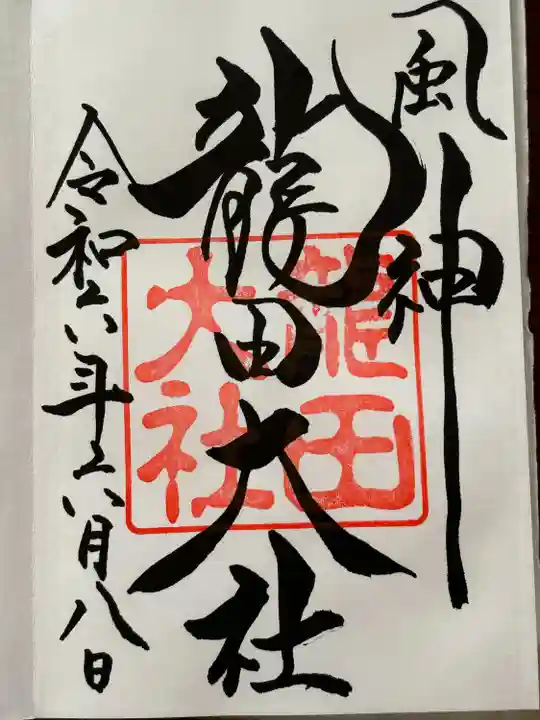 風神
龍田大社
龍田
大社
令和六年六月八日